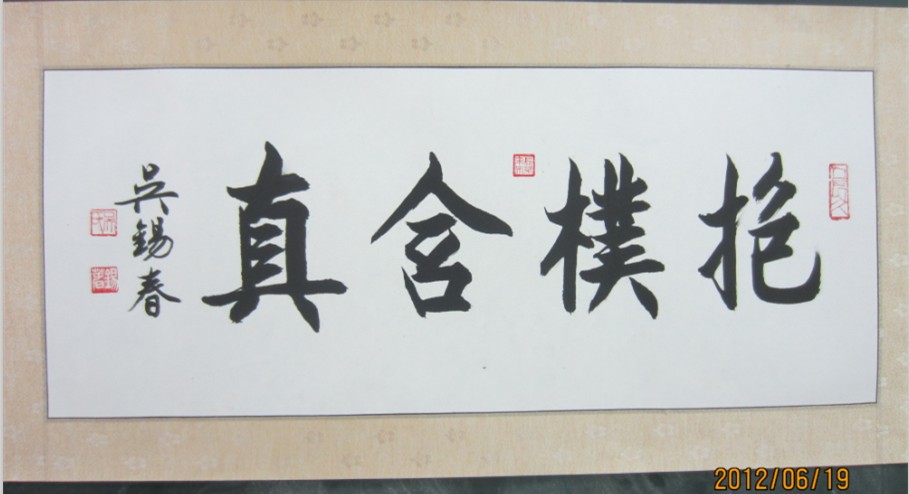 抱樸含真
吳錫春
2012/06/19